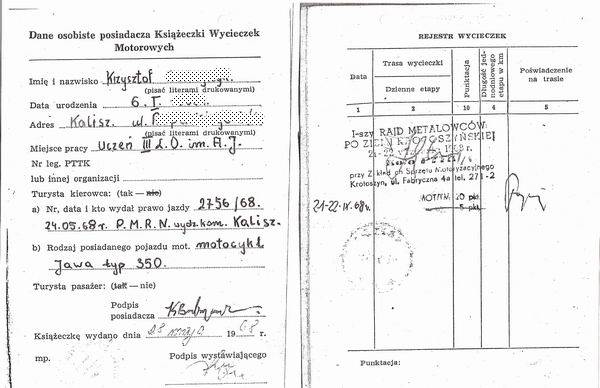 Dane osobiste posiadacza Książeczki Wycieczek
Motorowych
Imię i nazwisko Krzysztof
(pisać literami drukowanymi)
Data urodzenia 6. I.
Adres Kalisz. ul.
(pisać literami drukowanymi)
Miejsce pracy Uczeń III L.O. im. A. J.
Nr leg. PTTK
lub innej organizacji
Turysta kierowca: (tak — nie)
a) Nr, data i kto wydał prawo jazdy 2756/68.
24.05.68r. P.M.R.N. wydz. kom. Kalisz.
b) Rodzaj posiadanego pojazdu mot. motocykl
Jawa typ 350.
Turysta pasażer: (tak — nie)
Podpis
posiadacza
Książeczkę wydano dnia 28 maja 1968 r.
mp. Podpis wystawiającego
REJESTR WYCIECZEK
Data
Trasa wycieczki
Dzienne etapy
Punktacja
Długość jednodniowego etapu w km
Poświadczenie
na trasie
1 2 10 4 5
I-szy RAJD METALOWCÓW
PO ZIEMI KROTOSZYŃSKIEJ
21-22 1968 r.
przy Zakładach Sprzętu Motoryzacyjnego
Krotoszyn, ul. Fabryczna 4a tel. 271-2
21-22-IX.68r. 10 pkt.
5 pkt.
Punktacja: